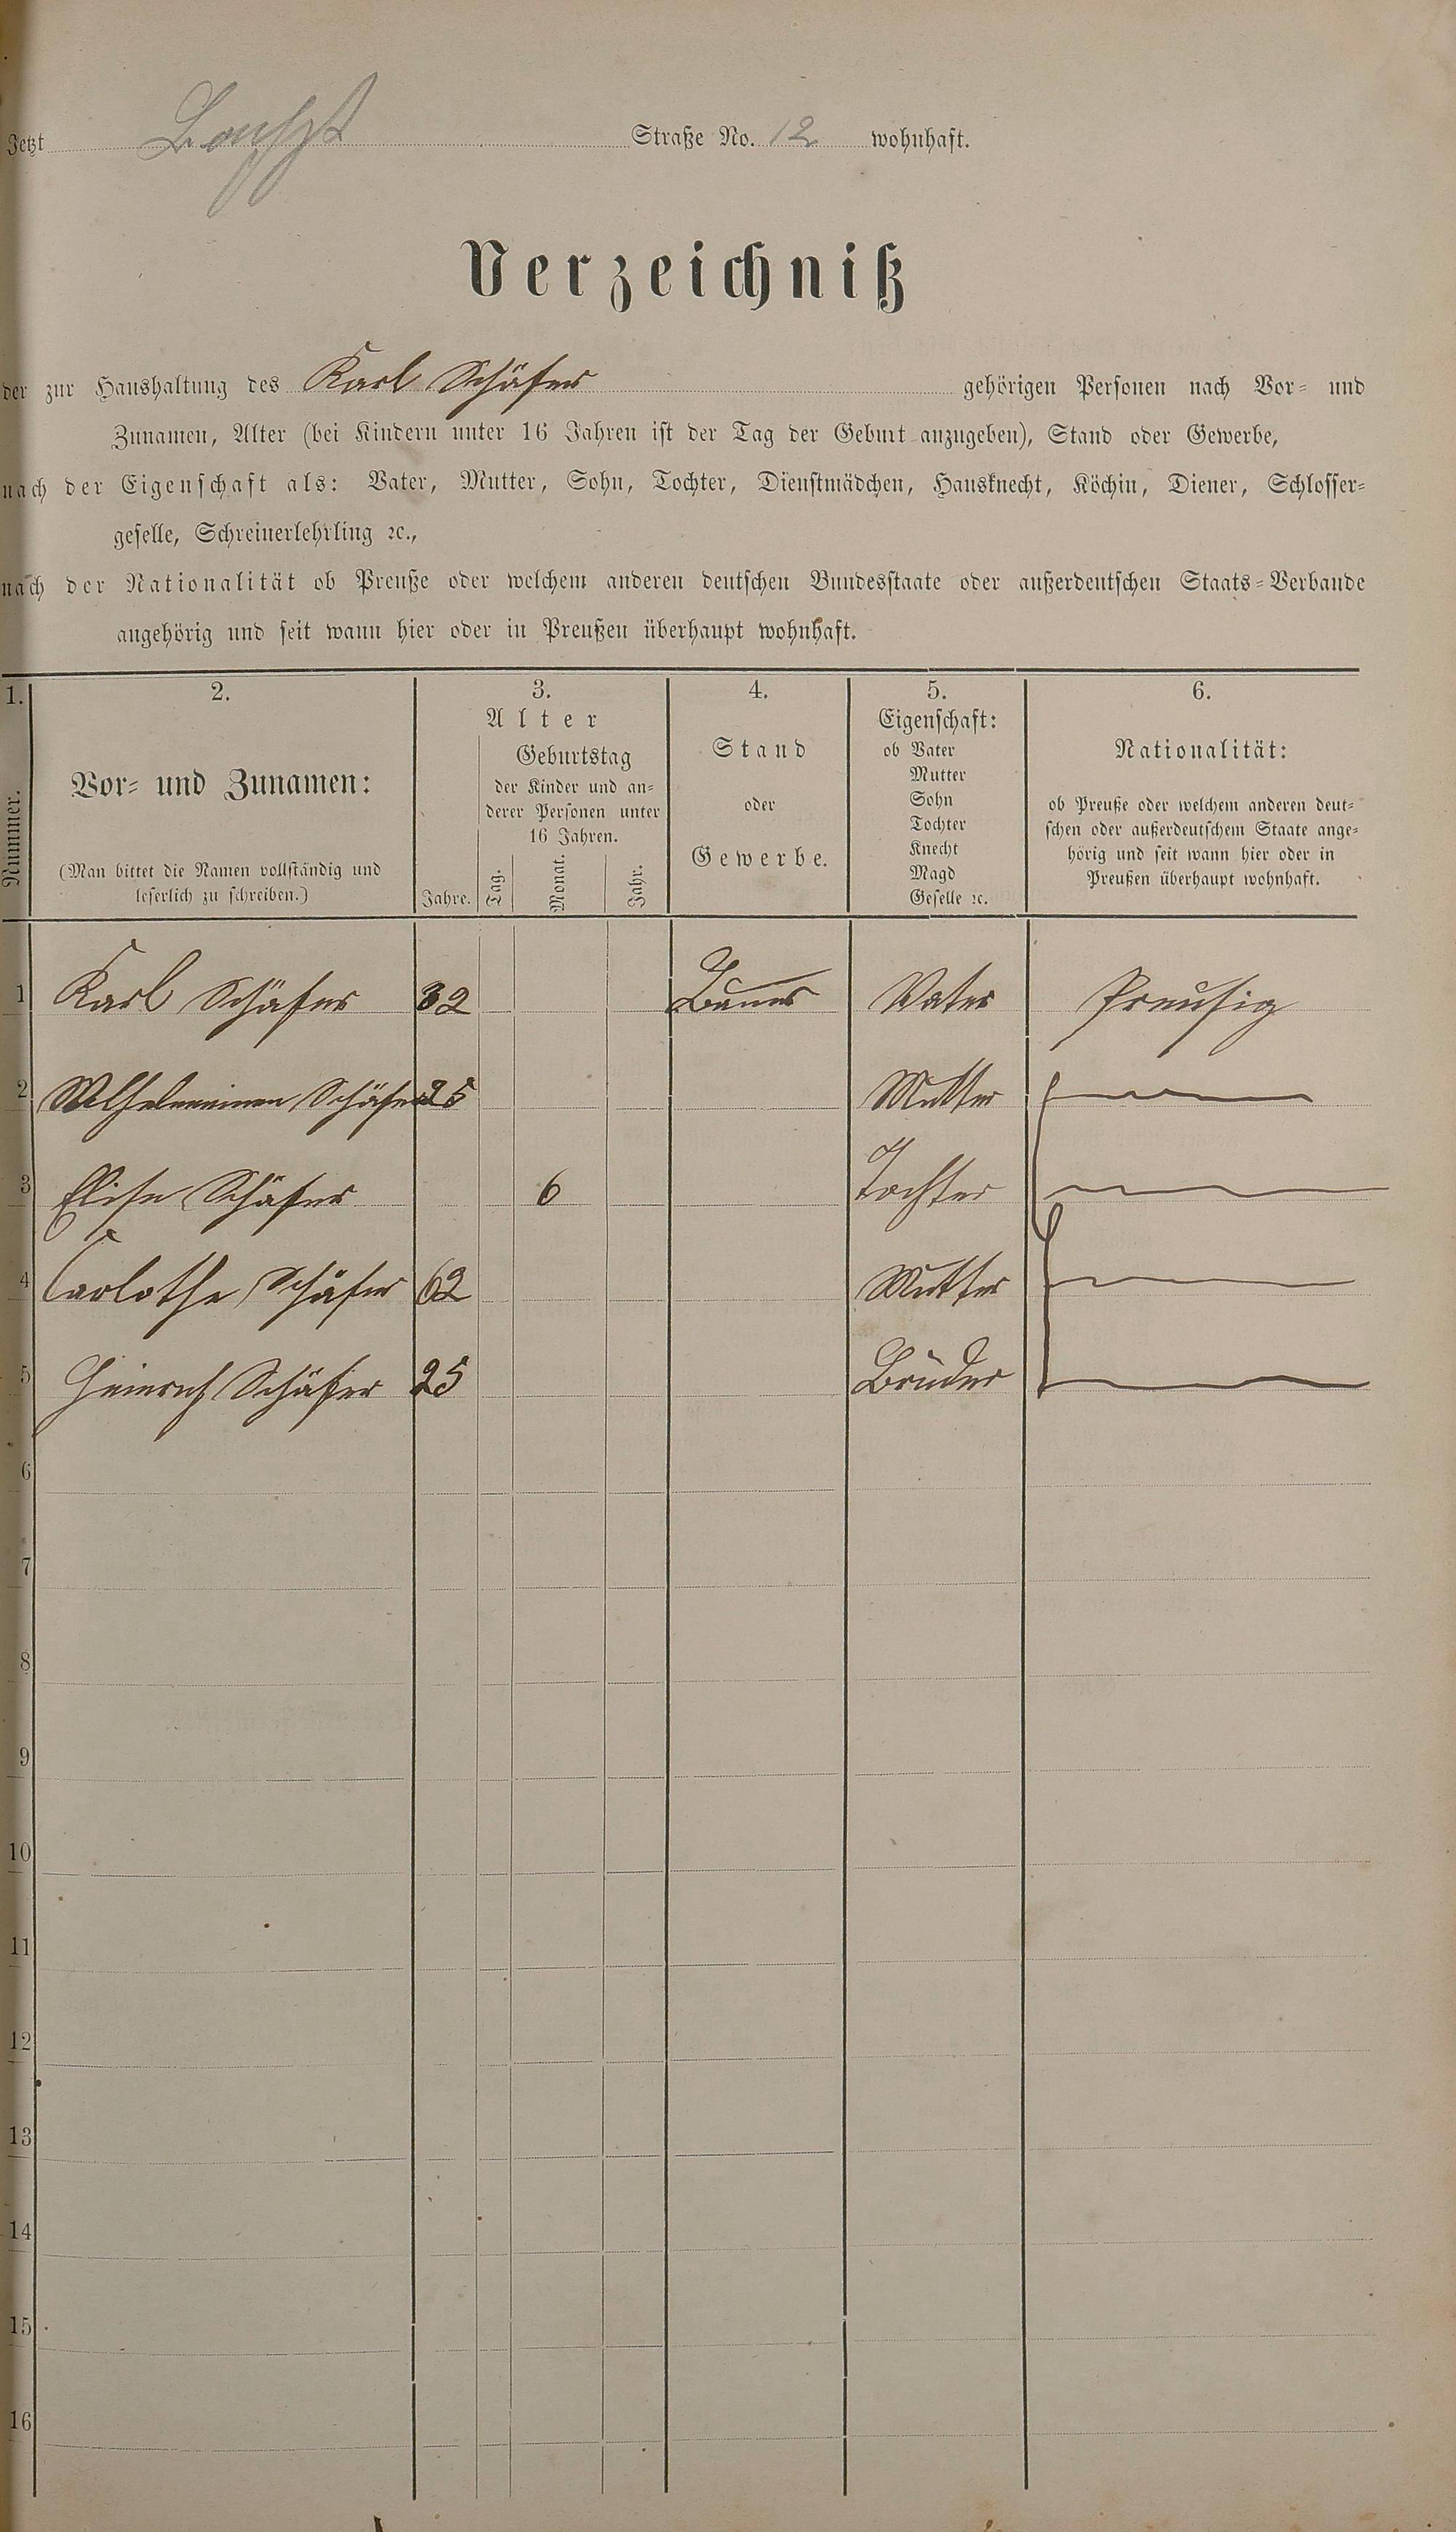 Jetzt Straße No. 12 wohnhaft.
Verzeichniß
der zur Haushaltung des Karl Schäfer gehörigen Personen nach Vor- und
Zunamen, Alter (bei Kindern unter 16 Jahren ist der Tag der Geburt anzugeben), Stand oder Gewerbe,
nach der Eigenschaft als: Vater, Mutter, Sohn, Tochter, Dienstmädchen, Hausknecht, Köchin, Diener, Schlosser-
geselle, Schreinerlehrling ꝛc.,
nach der Nationalität ob Preuße oder welchem anderen deutschen Bundesstaate oder außerdeutschen Staats-Verbande
angehörig und seit wann hier oder in Preußen überhaupt wohnhaft.
1. 2. 3. 4. 5. 6.
Nummer.
Vor- und Zunamen:
(Man bittet die Namen vollständig und
leserlich zu schreiben.)
Alter
Jahre.
Geburtstag
der Kinder und an-
derer Personen unter
16 Jahren.
Tag. Monat. Jahr.
Stand
oder
Gewerbe.
Eigenschaft:
ob Vater
Mutter
Sohn
Tochter
Knecht
Magd
Geselle ꝛc.
Nationalität:
ob Preuße oder welchem anderen deut-
schen oder außerdeutschem Staate ange-
hörig und seit wann hier oder in
Preußen überhaupt wohnhaft.
1 Karl Schäfer 32 Bauer Vater Preusig
2 Schäfer 25 Mutter
3 Elise Schäfer 6 Tochter
4 Carlothe Schäfer 62 Mutter
5 Heinrich Schäfer 25 Bruder
6
7
8
9
10
11
12
13
14
15
16